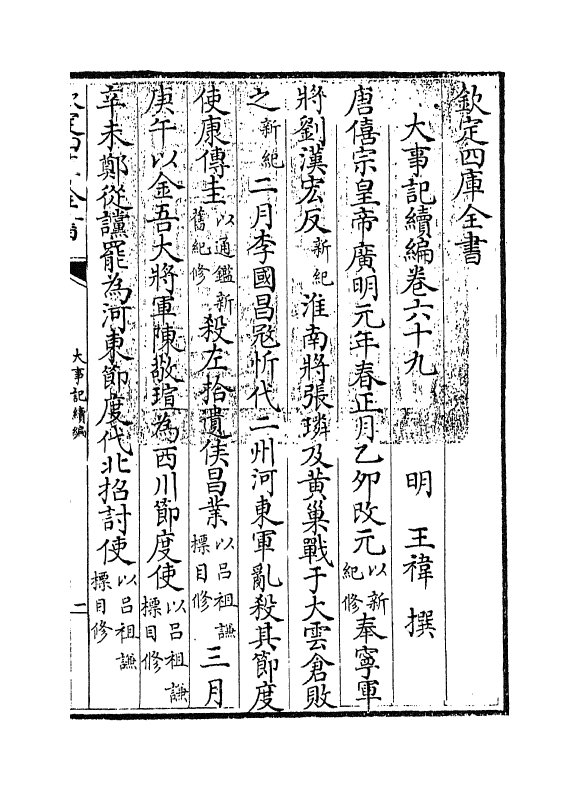 欽定四庫全書
大事記續編卷六十九　明　王禕　撰
唐僖宗皇帝廣明元年春正月乙卯改元以新紀修奉寧軍
將劉漢宏反新紀淮南將張璘及黃巢戰于大雲倉敗
之新紀二月李國昌寇忻代二州河東軍亂殺其節度
使康傳圭以通鑑新舊紀修殺左拾遺侯昌業以呂祖謙標目修三月
庚午以金吾大將軍陳敬瑄為西川節度使以呂祖謙標目修
辛未鄭從讜罷為河東節度代北招討使以呂祖謙標目修
欽定四庫全書
大事記續編